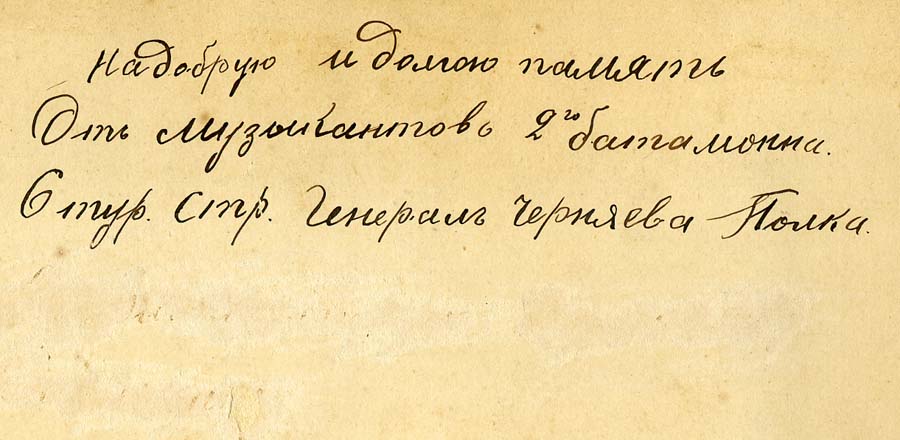 На добрую и долгою память
Отъ музыкантовъ 2го баталионна.
6 тур. стр. Генералъ Черняева Полка.